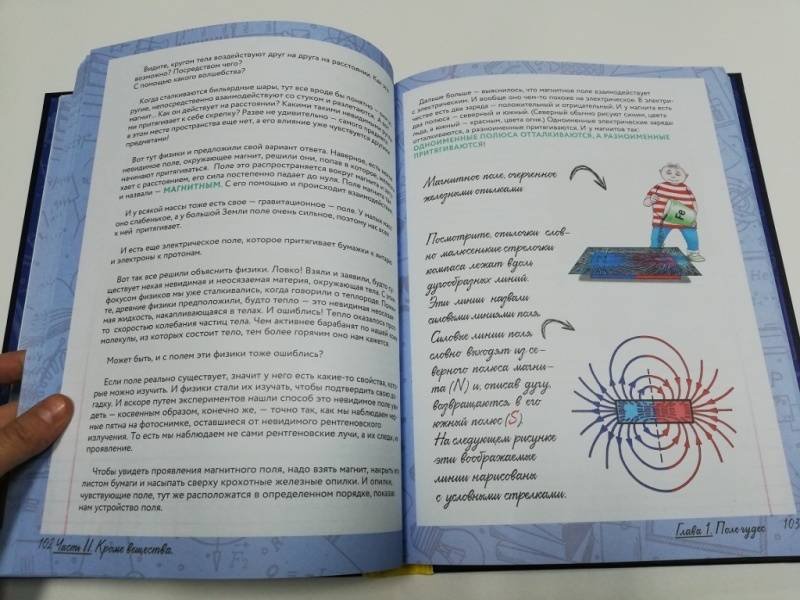 Видите, кругом тела воздействуют друг на друга на расстоянии. Как это
возможно? Посредством чего?
С помощью какого волшебства?
Когда сталкиваются бильярдные шары, тут все вроде бы понятно —
ругие, непосредственно взаимодействуют со стуком и разлетаются. А
магнит... Как он действует на расстоянии? Какими такими невидимыми
ми притягивает к себе скрепку? Разве не удивительно — самого предмета
в этом месте пространства еще нет, а его влияние уже чувствуется другими
предметами!
Вот тут физики и предложили свой вариант ответа. Наверное, есть
невидимое поле, окружающее магнит, решили они, попав в которое,
начинают притягиваться. Поле это распространяется вокруг магнита и
хает с расстоянием, его сила постепенно падает до нуля. Поле магнита так
и назвали — МАГНИТНЫМ. С его помощью и происходит
И у всякой массы тоже есть свое — гравитационное — поле. У малых
оно слабенькое, а у большой Земли поле очень сильное, поэтому нас всех
к ней притягивает.
И есть еще электрическое поле, которое притягивает бумажки к янтарю
и электроны к протонам.
Вот так все решили объяснить физики. Ловко! Взяли и заявили, будто су-
ществует некая невидимая и неосязаемая материя, окружающая тела. С этим
фокусом физиков мы уже сталкивались, когда говорили о теплороде.
те, древние физики предположили, будто тепло — это невидимая
мая жидкость, накапливающаяся в телах. И ошиблись! Тепло оказалось прос-
то скоростью колебания частиц тела. Чем активнее барабанят по нашей коже
молекулы, из которых состоит тело, тем более горячим оно нам кажется.
Может быть, и с полем эти физики тоже ошиблись?
Если поле реально существует, значит у него есть какие-то свойства, кото-
рые можно изучить. И физики стали их изучать, чтобы подтвердить свою до-
гадку. И вскоре путем экспериментов нашли способ это невидимое поле уви-
деть — косвенным образом, конечно же, — точно так, как мы наблюдаем чер-
ные пятна на фотоснимке, оставшиеся от невидимого рентгеновского
излучения. То есть мы наблюдаем не сами рентгеновские лучи, а их следы,
проявление.
Чтобы увидеть проявления магнитного поля, надо взять магнит, накрыть его
листом бумаги и насыпать сверху крохотные железные опилки. И опилки,
чувствующие поле, тут же расположатся в определенном порядке, показав
нам устройство поля.
102 Часть II. Кроме вещества
Дальше больше — выяснилось, что магнитное поле взаимодействует
с электрическим. И вообще оно чем-то похоже на электрическое. В электри-
честве есть два заряда — положительный и отрицательный. И у магнита есть
два полюса — северный и южный. (Северный обычно рисуют синим, цвета
льда, а южный — красным, цвета огня.) Одноименные электрические заряды
отталкиваются, а разноименные притягиваются. И у магнитов так:
ОДНОИМЕННЫЕ ПОЛЮСА ОТТАЛКИВАЮТСЯ, А РАЗНОИМЕННЫЕ
ПРИТЯГИВАЮТСЯ!
Магнитное поле, очерченное
железными опилками
Fe
Посмотрите, опилочки слов-
но малюсенькие стрелочки
компаса лежат вдоль
дугообразных линий.
Эти линии назвали
силовыми линиями поля.
Силовые линии поля
словно выходят из се-
верного полюса магни-
та (N) и, описав дугу,
возвращаются в его
южный полюс (S).
На следующем рисунке
эти воображаемые
линии нарисованы
с условными стрелками.
Глава 1. Поле чудес 103